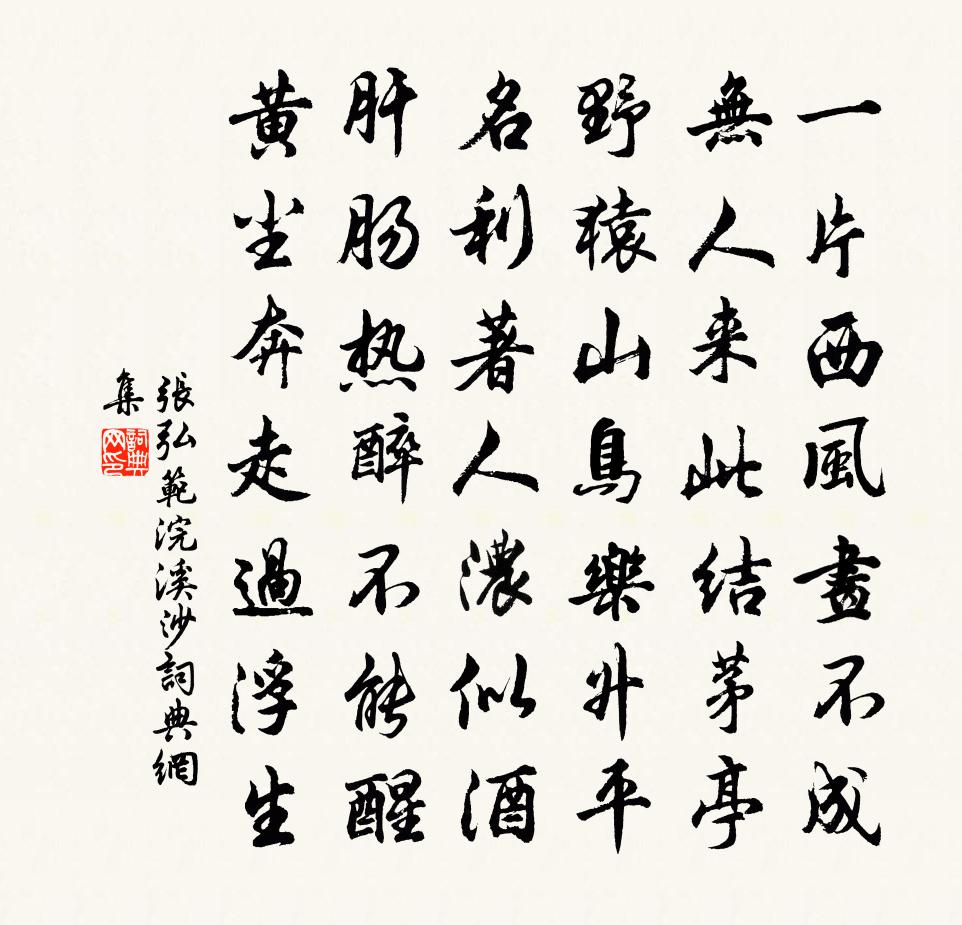 一片西風畫不成
無人来此結茅亭
野猿山鳥樂升平
名利著人濃似酒
肝肠热醉不能醒
黄尘奔走過浮生
張弘範浣溪沙詞典網
集
詞典網印